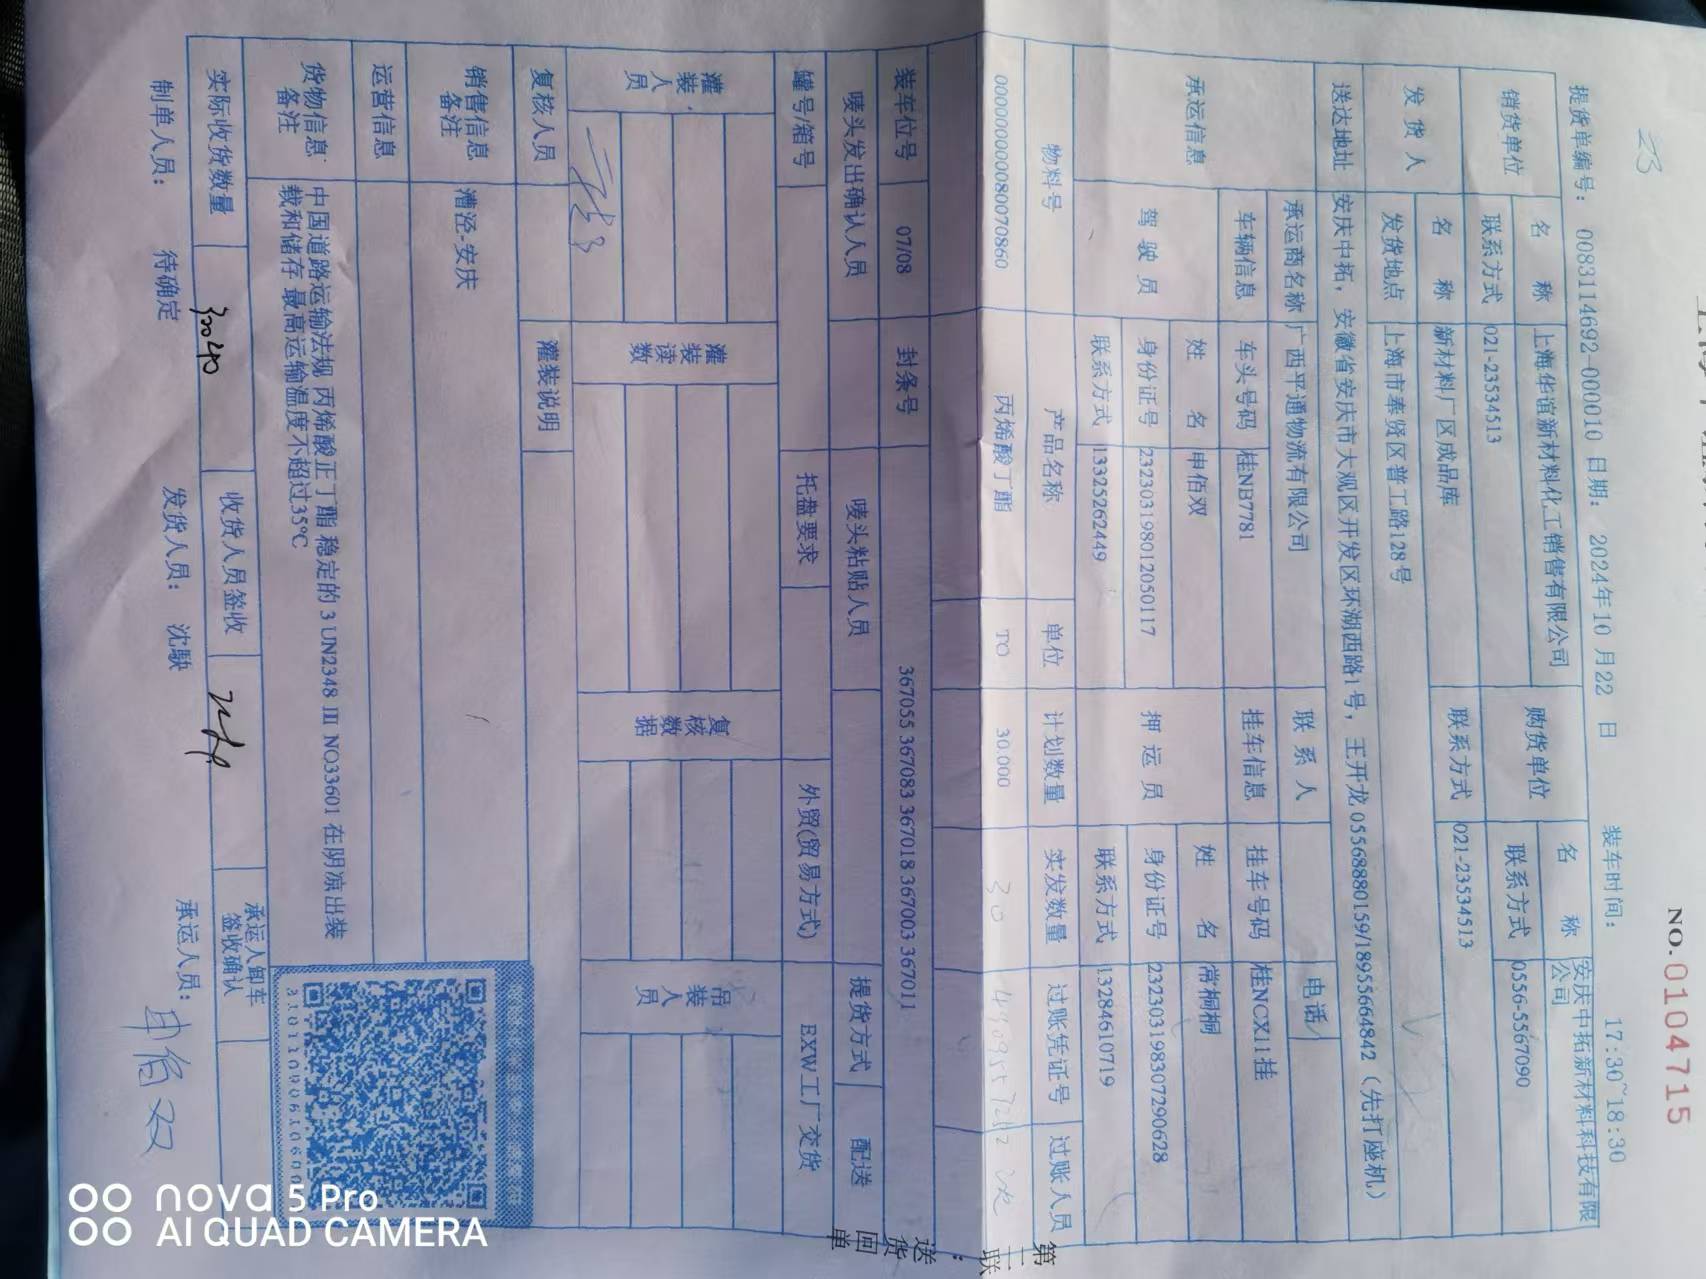 NO.0104715
提货单编号: 0083114692-000010 日期: 2024年10月22日 装车时间: 17:30~18:30
销货单位 名 称 上海华谊新材料化工销售有限公司 购货单位 名 称 安庆中拓新材料科技有限公司
联系方式 021-23534513 联系方式 0556-5567090
发 货 人 名 称 新材料厂区成品库 联系方式 021-23534513
发货地点 上海市奉贤区普工路128号
送达地址 安庆中拓,安徽省安庆市大观区开发区环湖西路1号,王开龙 05568880159/18955664842(先打座机)
承运信息 承运商名称 广西平通物流有限公司 联 系 人 电话/
车辆信息 车头号码 桂NB7781 挂车信息 挂车号码 桂NCX11挂
驾 驶 员 姓 名 申佰双 押 运 员 姓 名 常桐桐
身份证号 232303198012050117 身份证号 232303198307290628
联系方式 13325262449 联系方式 13284610719
物料号 产品名称 单位 计划数量 实发数量 过账凭证号 过账人员
000000000080070860 丙烯酸丁酯 TO 30.000 30
装车位号 07/08 封条号 367055 367083 367018 367003 367011
唛头发出确认人员 唛头粘贴人员 提货方式 配送
罐号/箱号 托盘要求 外贸(贸易方式) EXW工厂交货
灌装人员 灌装读数 复核数据 吊装人员
复核人员 灌装说明
销售信息备注 漕泾-安庆
运营信息
货物信息备注 中国道路运输法规 丙烯酸正丁酯 稳定的 3 UN2348 III NQ33601 在阴凉出装
载和储存 最高运输温度不超过35℃
实际收货数量 3040 收货人员签收 承运人卸车签收确认
制单人员: 待确定 发货人员: 沈駃 承运人员: 申佰双
第三联:送货回单
nova 5 Pro
AI QUAD CAMERA